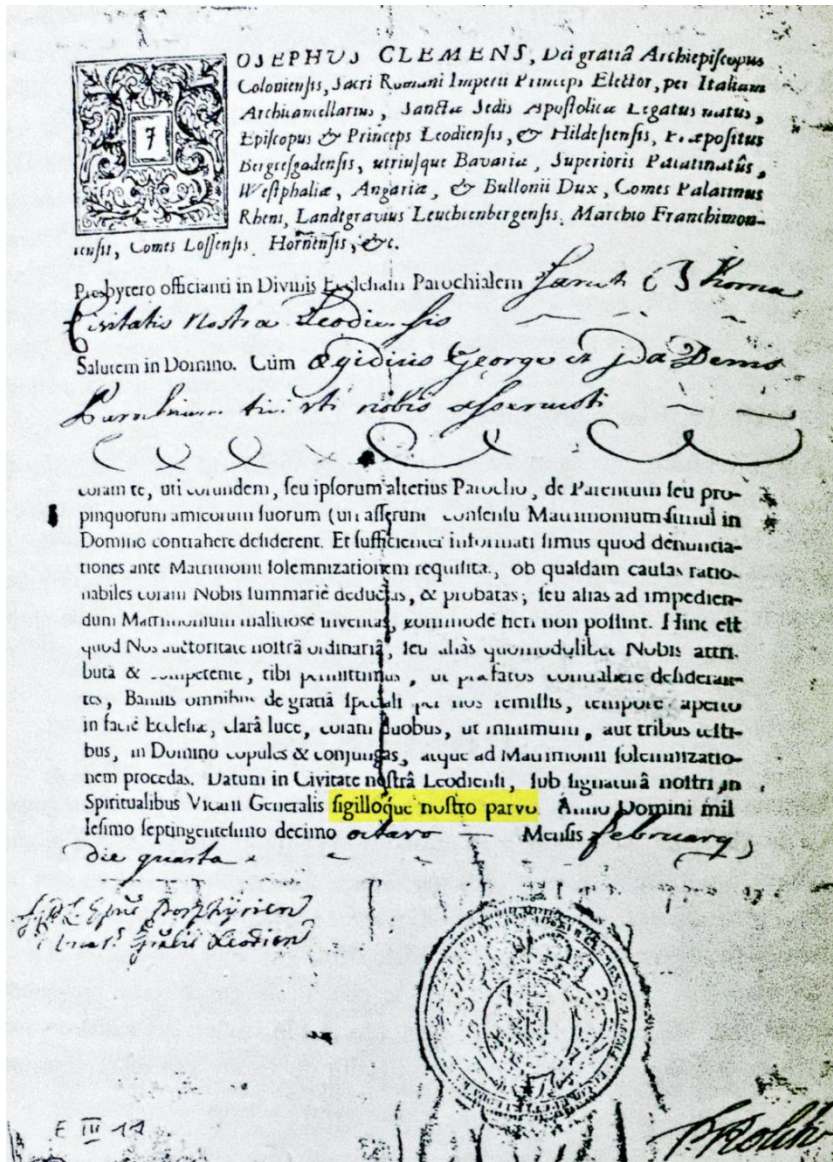 JOSEPHUS CLEMENS, Dei gratiâ Archiepiſcopus
Colonienſis, Sacri Romani Imperii Princeps Elector, per Italiam
Archicancellarius, Sanctæ Sedis Apoſtolicæ Legatus natus,
Epiſcopus & Princeps Leodienſis, & Hildeſienſis, Præpoſitus
Bergteſgadenſis, utriuſque Bavariæ, Superioris Palatinatûs,
Weſtphaliæ, Angariæ, & Bullonii Dux, Comes Palatinus
Rheni, Landtgravius Leuchtenbergenſis, Marchio Franchimon-
tenſis, Comes Loſſenſis Hornenſis, &c.
Presbytero officianti in Divinis Eccleſiam Parochialem Sancti Thoma
Civitatis Nostra Leodiensis
Salutem in Domino. Cùm Ægidius George et Ida
nobis
coram te, uti eorundem, ſeu ipſorum alterius Parocho, de Parentum ſeu pro-
pinquorum amicorum ſuorum (uti aſſerunt conſenſu Matrimonium ſimul in
Domino contrahere deſiderent. Et ſufficienter informati ſimus quod denuncia-
tiones ante Matrimonii ſolemnizationem requiſitæ, ob quaſdam cauſas ratio-
nabiles coram Nobis ſummariè deductas, & probatas; ſeu alias ad impedien-
dum Matrimonium malitiosè inventas, commodè fieri non poſſint. Hinc eſt
quod Nos auctoritate noſtrâ ordinariâ, ſeu aliàs quomodolibet Nobis attri-
butâ & competente, tibi permittimus, ut præfatos contrahere deſideran-
tes, Bannis omnibus de gratiâ ſpeciali per nos remiſſis, tempore aperto
in facie Eccleſiæ, clarâ luce, coram duobus, ut minimum, aut tribus teſti-
bus, in Domino copules & conjungas, atque ad Matrimonii ſolemnizatio-
nem procedas. Datum in Civitate noſtrâ Leodienſi, ſub ſignaturâ noſtri in
Spiritualibus Vicarii Generalis ſigilloque noſtro parvo. Anno Domini mil
leſimo ſeptingenteſimo decimo octavo Menſis february
die quarta
Leodien
E III 11